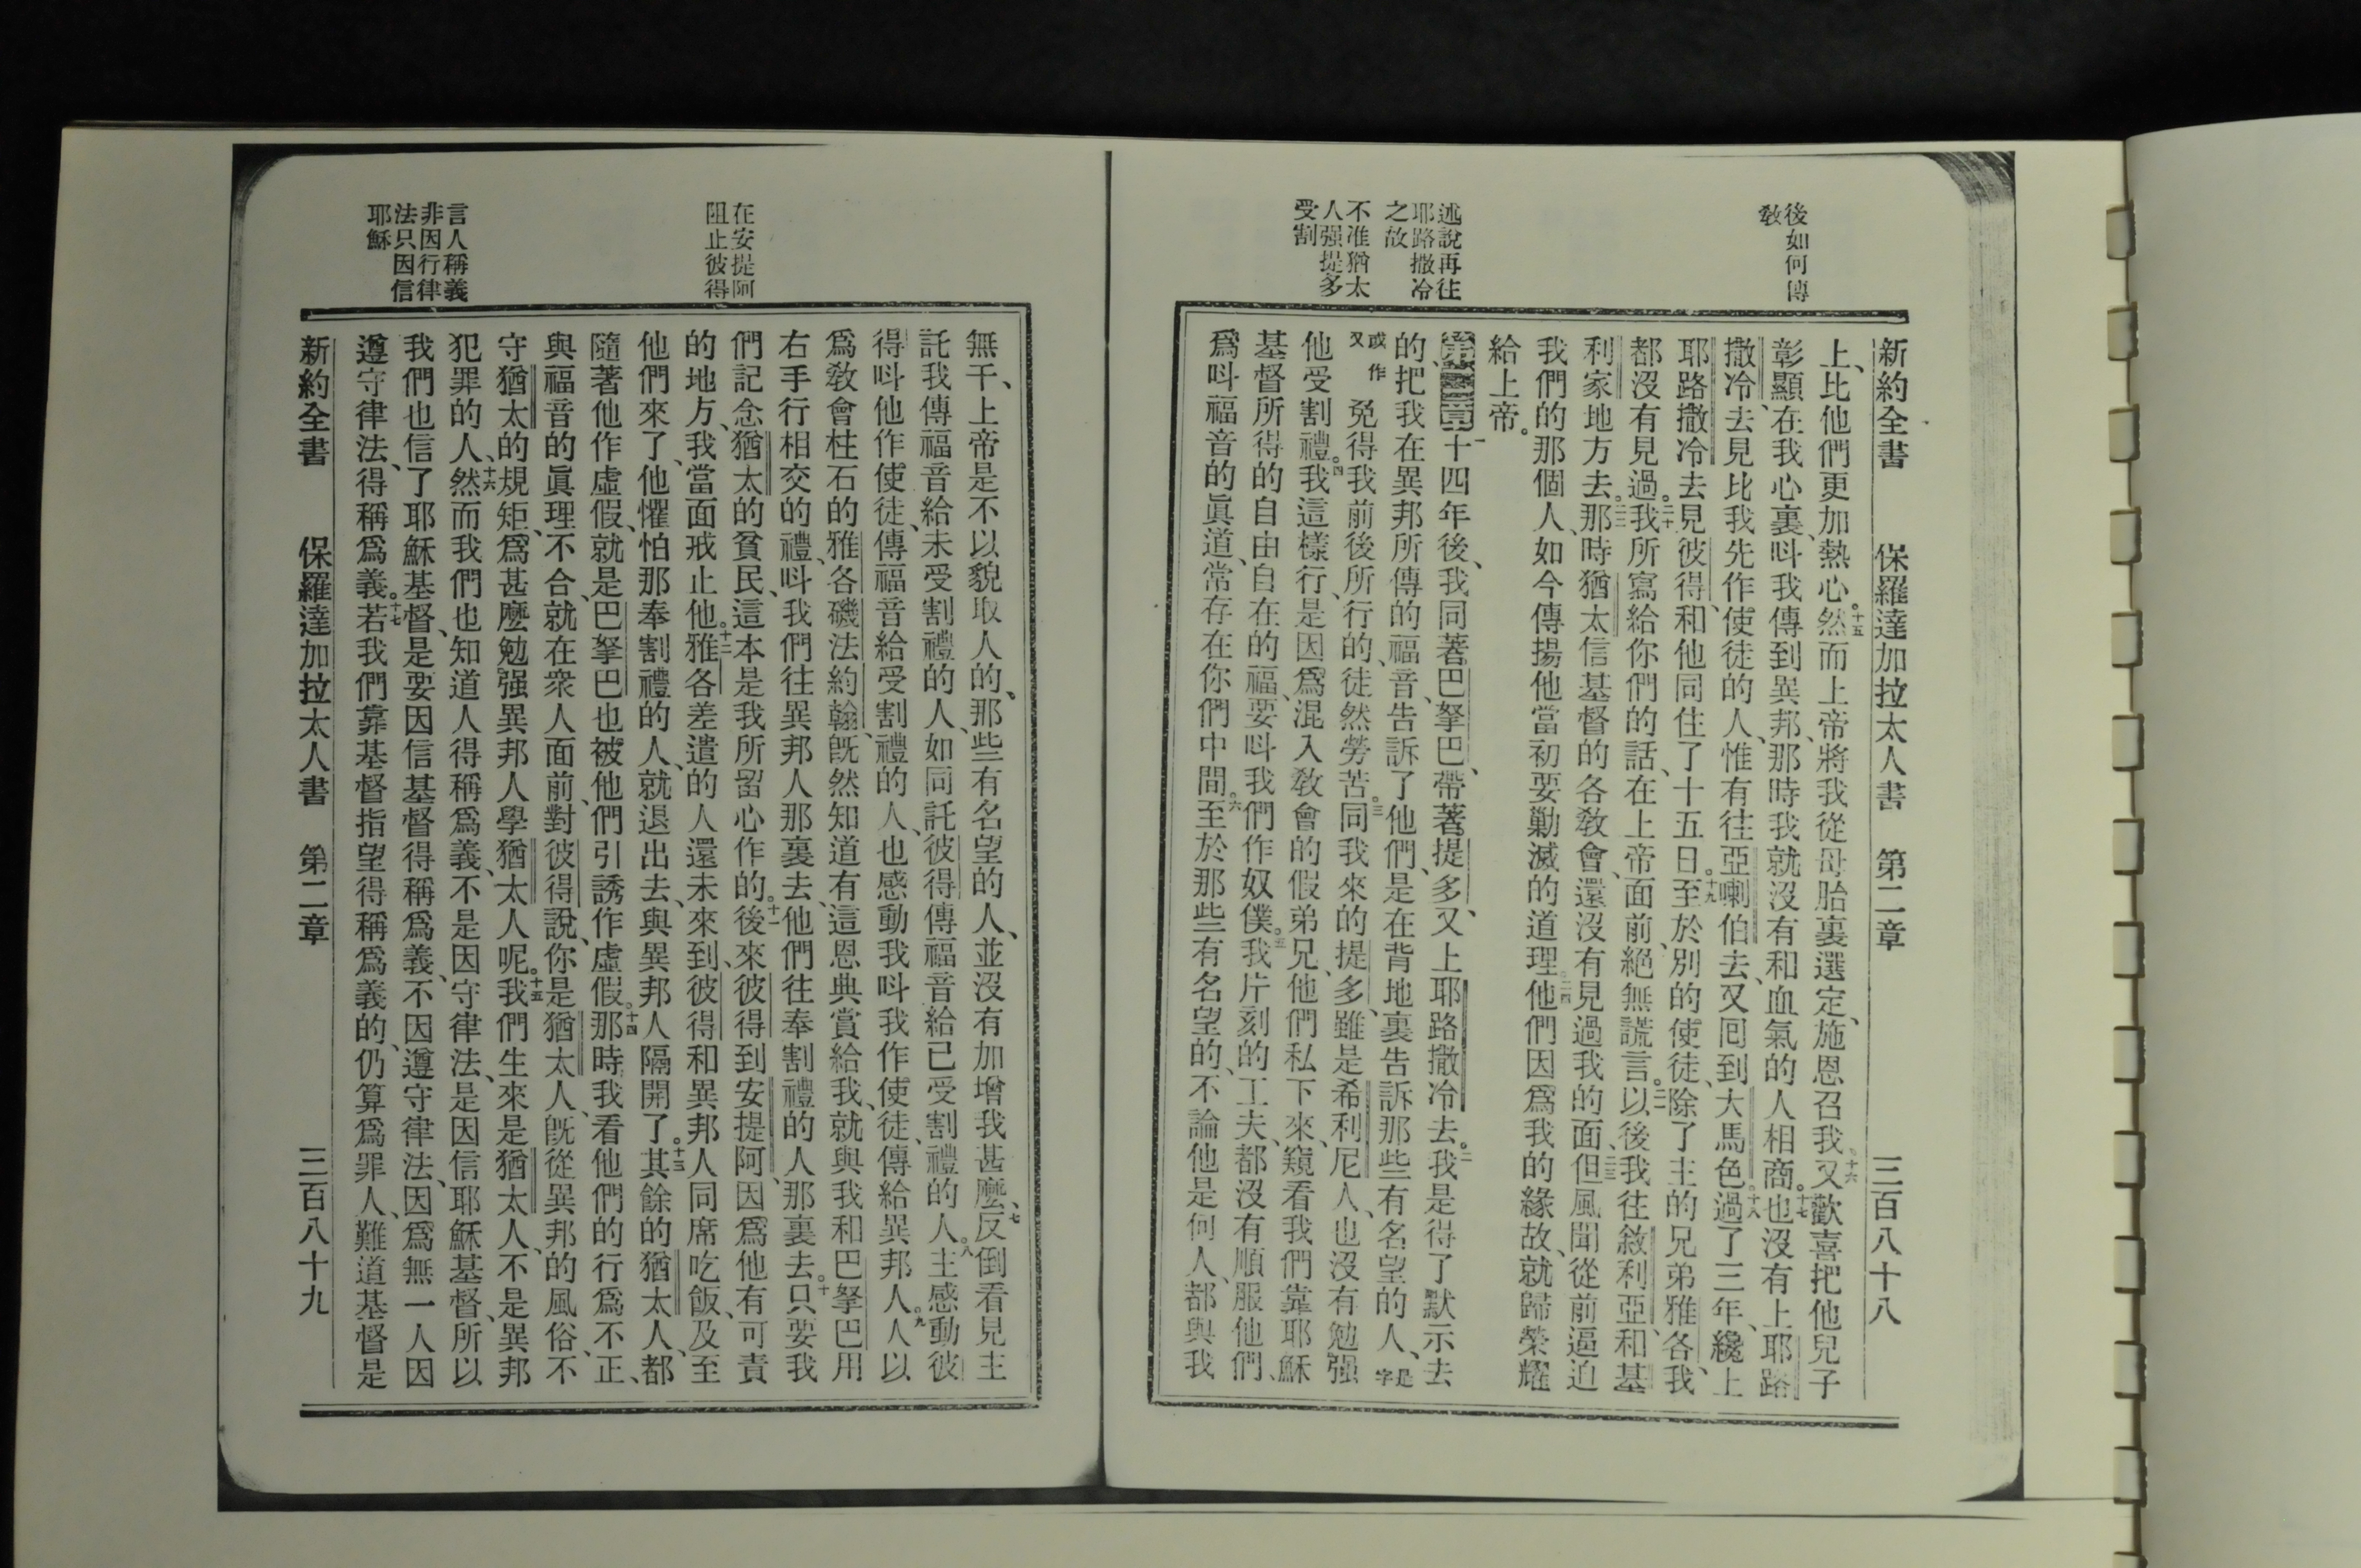 後如何傳
敎
述說再往
耶路撒冷
之故
不准猶太
人强提多
受割
新約全書 保羅達加拉太人書 第二章 三百八十八
上、比他們更加熱心。十五然而上帝將我從母胎裏選定、施恩召我。十六又歡喜把他兒子
彰顯在我心裏、呌我傳到異邦、那時我就沒有和血氣的人相商。十七也沒有上耶路
撒冷去、見比我先作使徒的人、惟有往亞喇伯去、又囘到大馬色。十八過了三年、纔上
耶路撒冷去見彼得、和他同住了十五日。十九至於別的使徒、除了主的兄弟雅各、我
都沒有見過。二十我所寫給你們的話、在上帝面前、絕無謊言。二一以後我往敘利亞、和基
利家地方去。二二那時猶太信基督的各敎會、還沒有見過我的面、二三但風聞從前逼迫
我們的那個人、如今傳揚他當初要勦滅的道理。二四他們因爲我的緣故、就歸榮耀
給上帝。
第二章一十四年後、我同著巴拏巴、帶著提多、又上耶路撒冷去。二我是得了默示去
的、把我在異邦所傳的福音、告訴了他們、是在背地裏告訴那些有名望的人、是字
或作又免得我前後所行的、徒然勞苦。三同我來的提多、雖是希利尼人、也沒有勉强
他受割禮。四我這樣行、是因爲混入敎會的假弟兄、他們私下來、窺看我們靠耶穌
基督所得的自由自在的福、要呌我們作奴僕。五我片刻的工夫、都沒有順服他們、
爲呌福音的眞道、常存在你們中間。六至於那些有名望的、不論他是何人、都與我
在安提阿
阻止彼得
言人稱義
非因行律
法只因信
耶穌
無干、上帝是不以貌取人的、那些有名望的人、並沒有加增我甚麼、七反倒看見主
託我傳福音給未受割禮的人、如同託彼得傳福音給已受割禮的人。八主感動彼
得呌他作使徒、傳福音給受割禮的人、也感動我呌我作使徒、傳給異邦人。九人以
爲敎會柱石的雅各磯法約翰、旣然知道有這恩典賞給我、就與我和巴拏巴用
右手行相交的禮、呌我們往異邦人那裏去、他們往奉割禮的人那裏去。十只要我
們記念猶太的貧民、這本是我所畱心作的。十一後來彼得到安提阿、因爲他有可責
的地方、我當面戒止他。十二雅各差遣的人還未來到、彼得和異邦人同席吃飯、及至
他們來了、他懼怕那奉割禮的人、就退出去、與異邦人隔開了。十三其餘的猶太人、都
隨著他作虛假、就是巴拏巴也被他們引誘作虛假。十四那時我看他們的行爲不正、
與福音的眞理不合、就在衆人面前、對彼得說、你是猶太人、旣從異邦的風俗、不
守猶太的規矩、爲甚麼勉强異邦人學猶太人呢。十五我們生來是猶太人、不是異邦
犯罪的人、十六然而我們也知道人得稱爲義、不是因守律法、是因信耶穌基督、所以
我們也信了耶穌基督、是要因信基督得稱爲義、不因遵守律法、因爲無一人因
遵守律法、得稱爲義。十七若我們靠基督指望得稱爲義的、仍算爲罪人、難道基督是
新約全書 保羅達加拉太人書 第二章 三百八十九